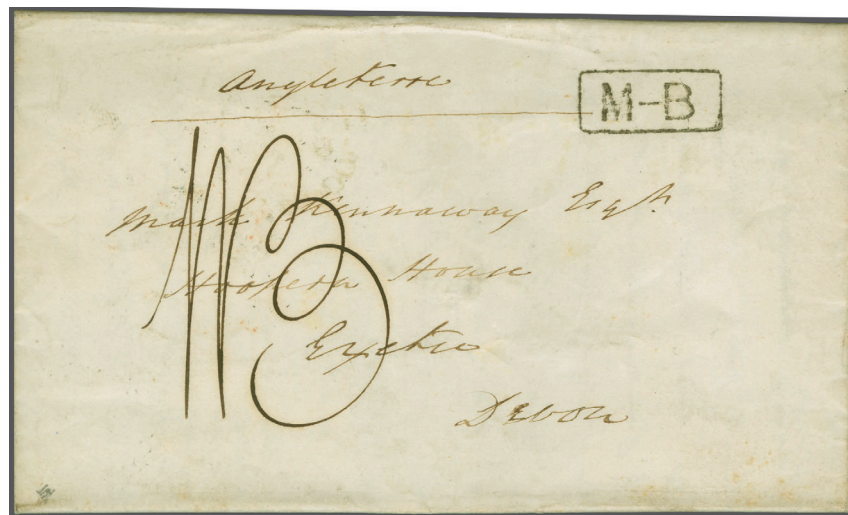 Angleterre
M-B
Mark Kennaway Esqr.
House
Exeter
Devon